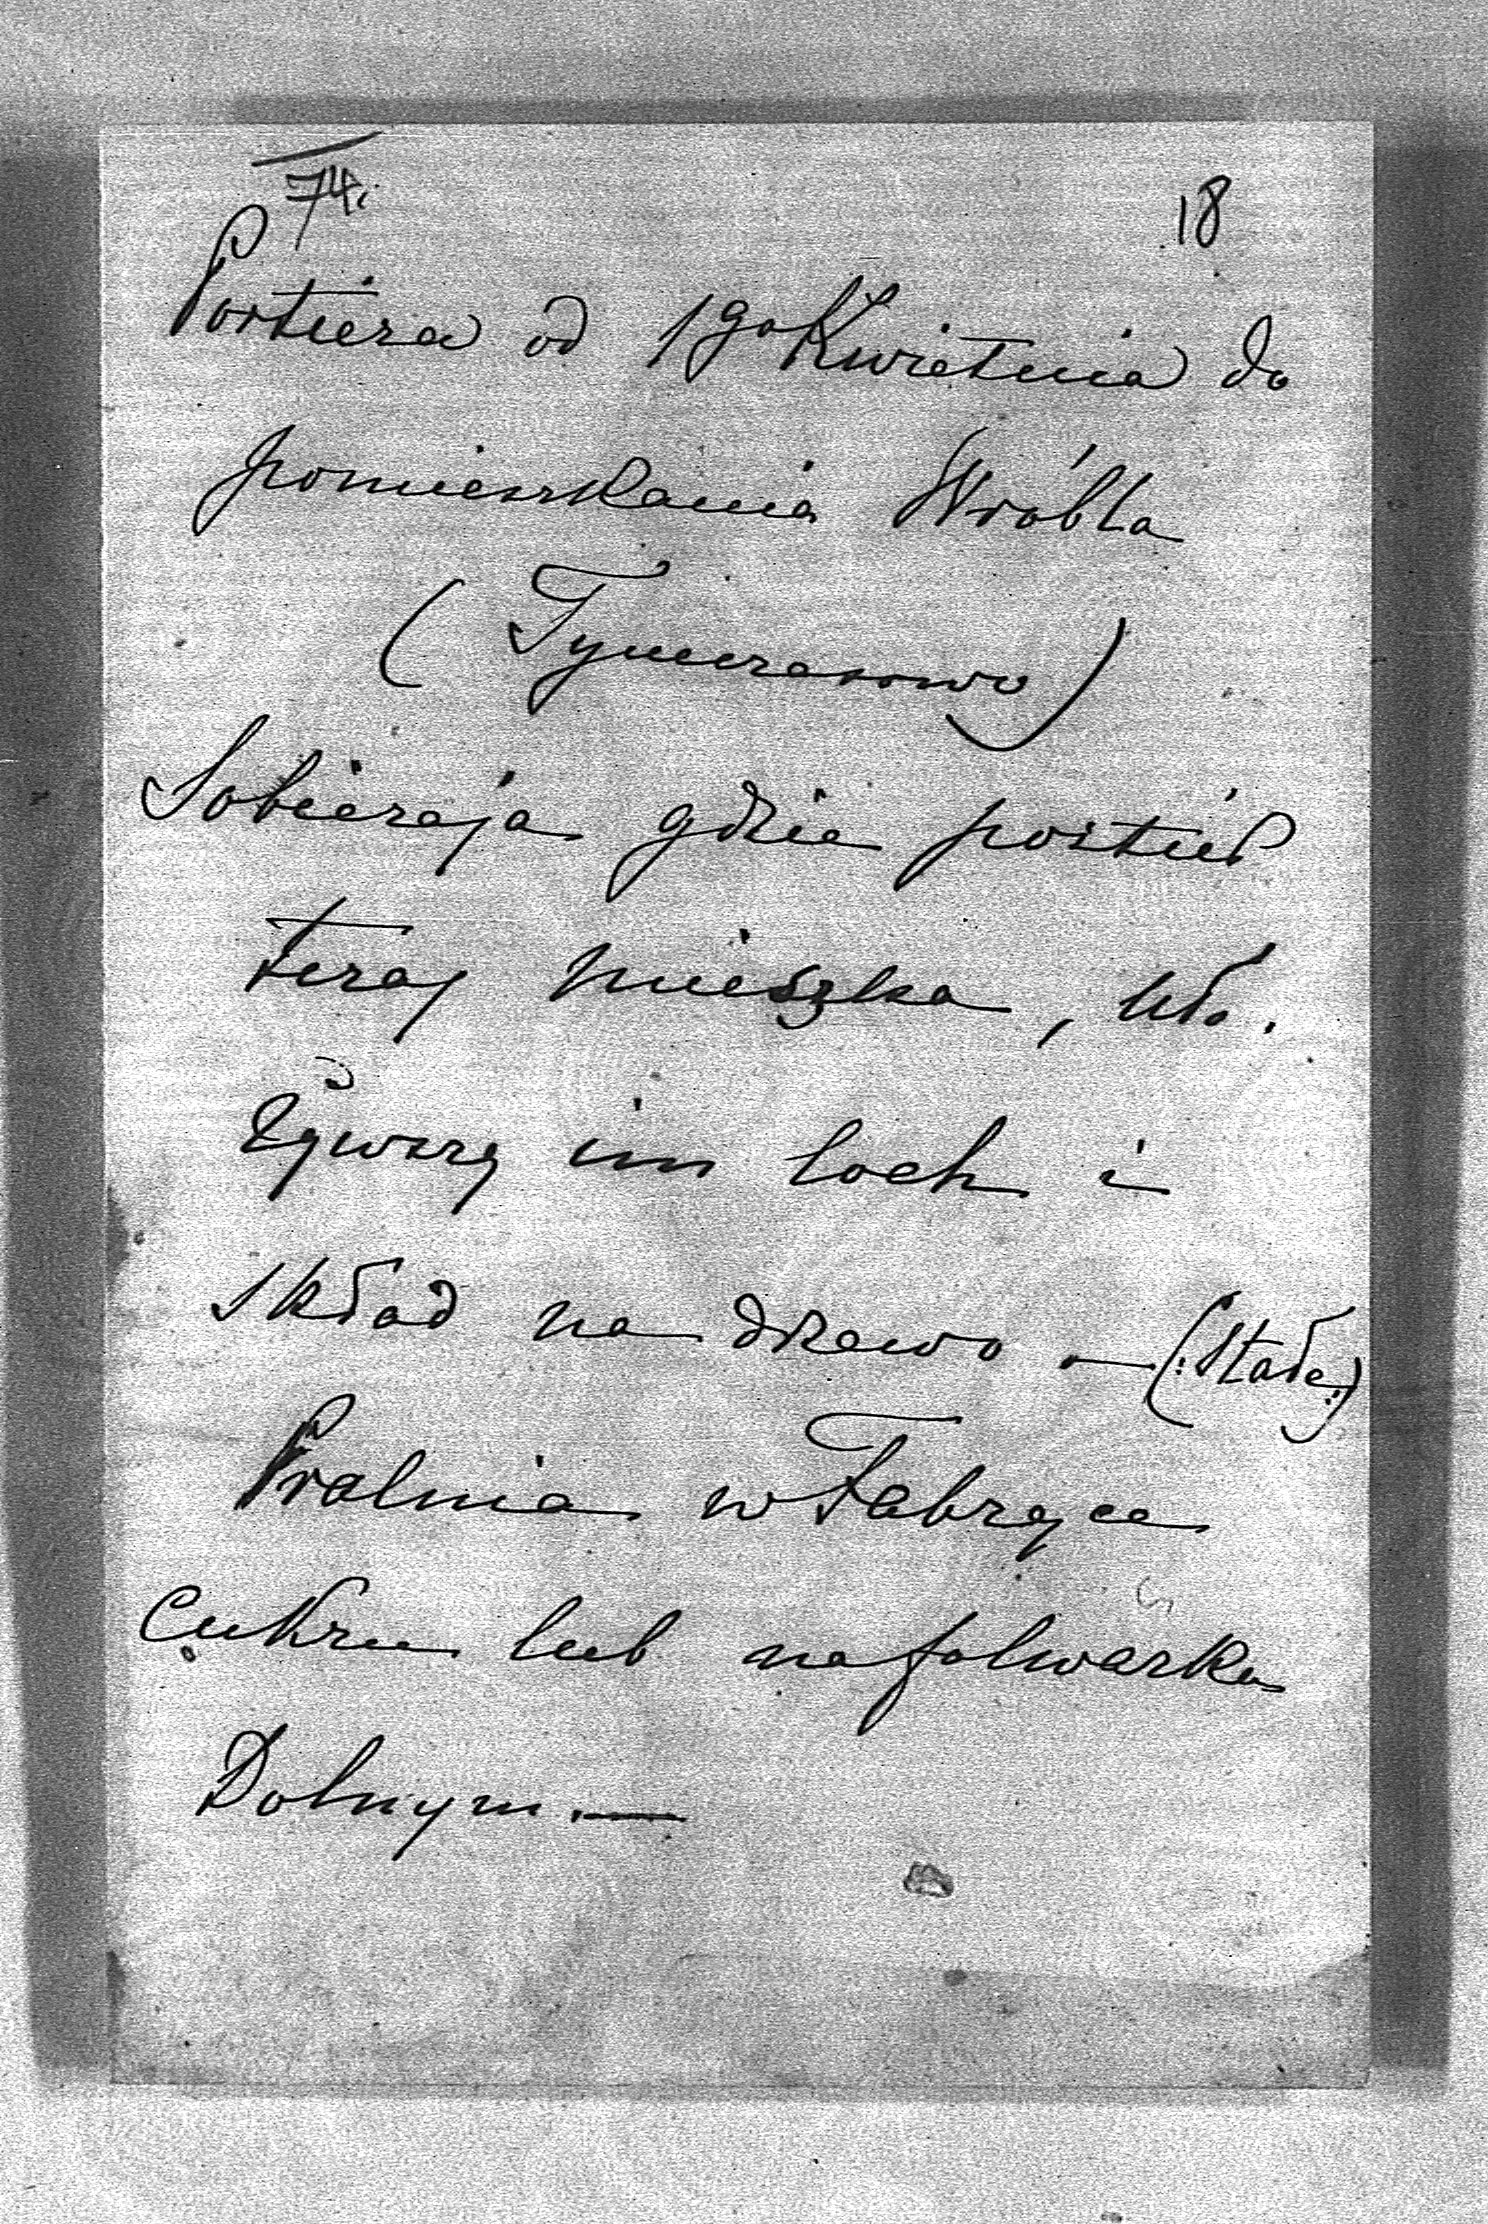 74.
18
Portiera od 1go Kwietnia do
pomieszkania Wróbla
(Tymczasowo)
Sobieraja gdzie portier
teraz mieszka, uło.
żywszy im loch i
skład na drzewo. — (:Stałe:)
Pralnia w Fabryce
Cukru lub na folwarku
Dolnym. —